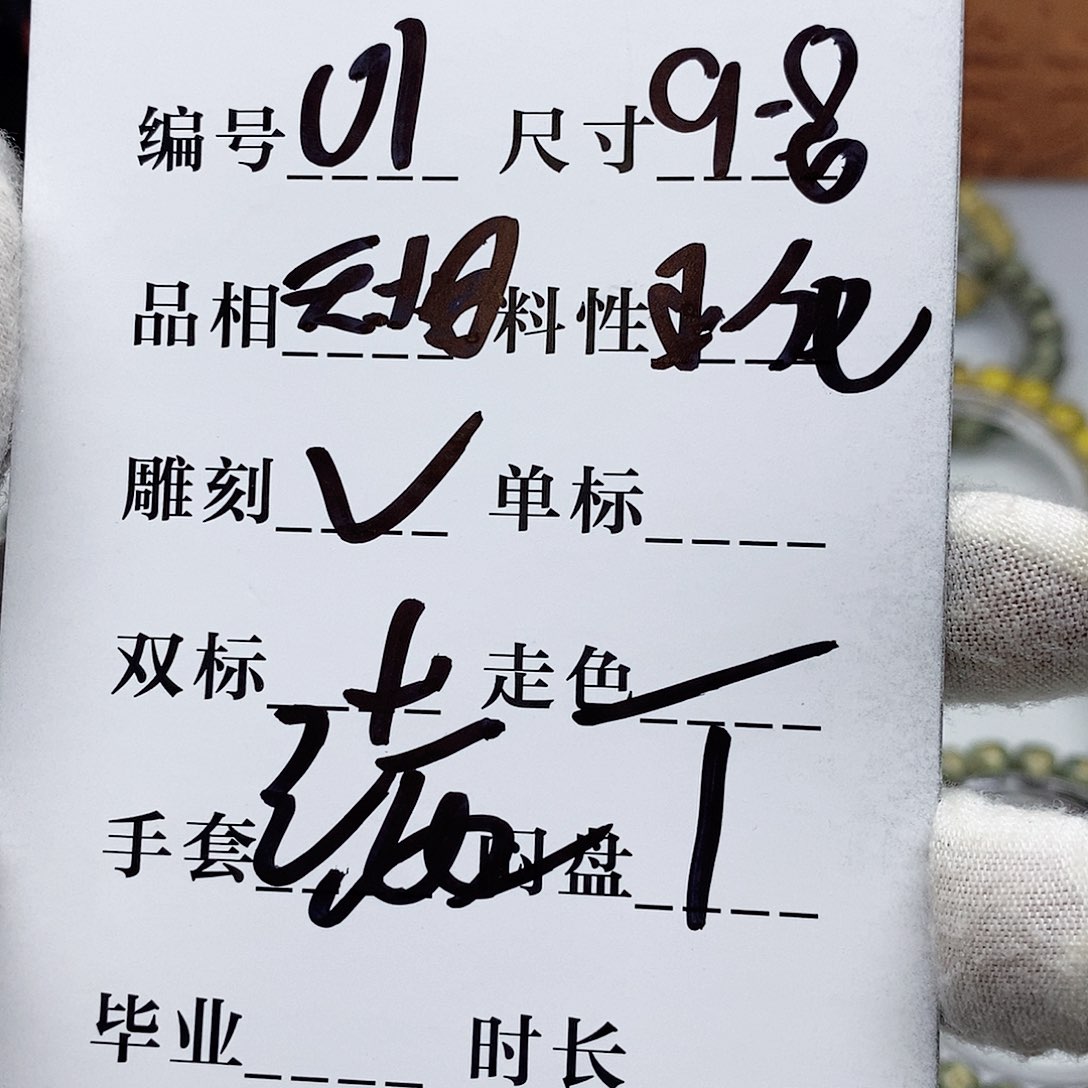 编号 01 尺寸 9-8
品相 无相 料性 玉化
雕刻 ✓ 单标
双标 走色
手套 闷盘
毕业 时长